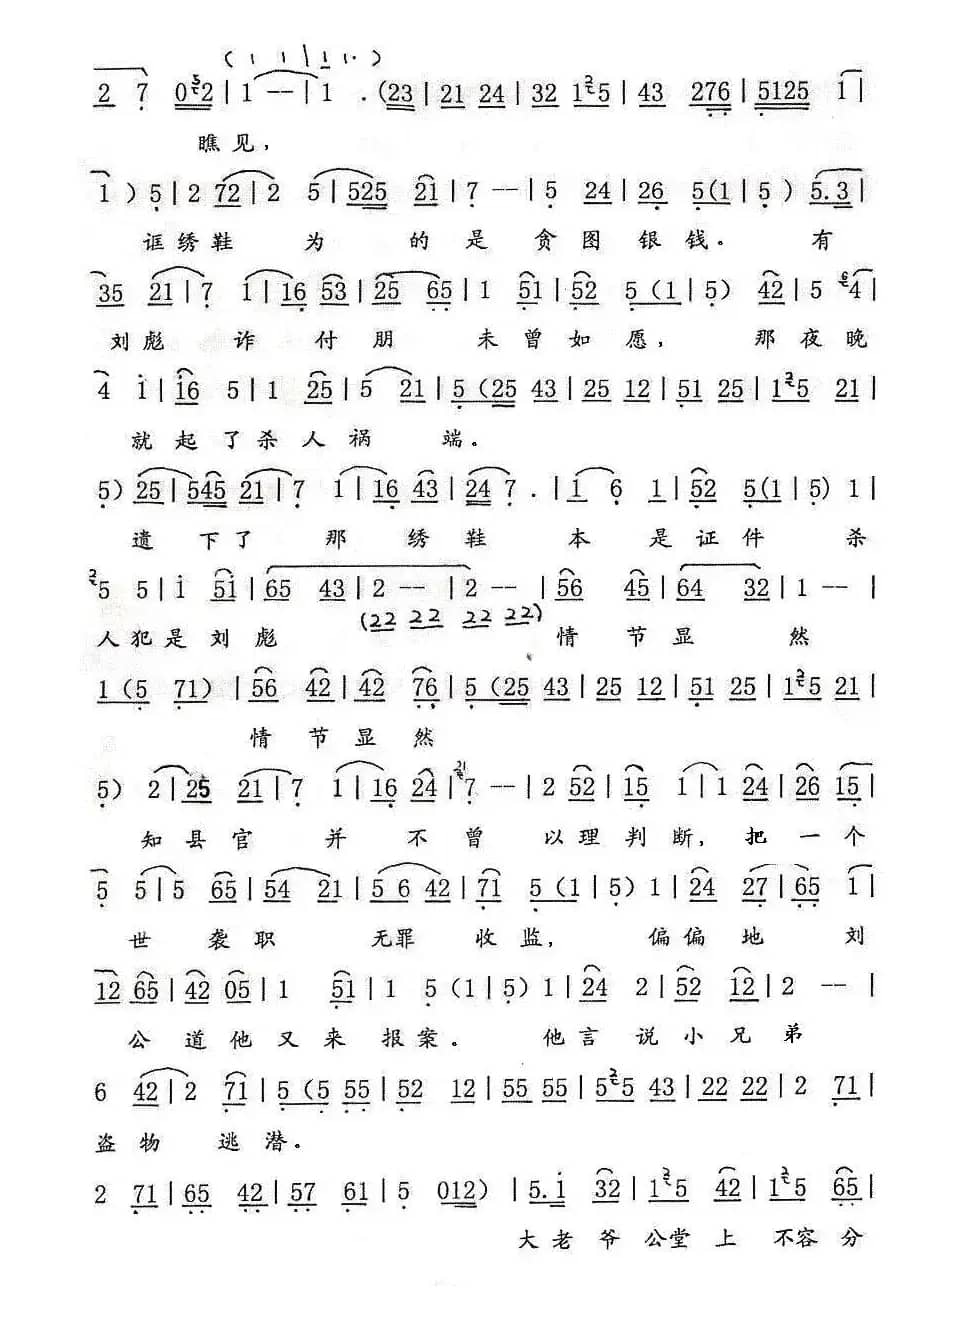 ( 1 1 | 1 1·· )
2 7 052 | 1 -- | 1 . (23 | 21 24 | 32 125 | 43 276 | 5125 1 |
瞧见，
1 ) 5 | 2 72 | 2 5 | 525 21 | 7 -- | 5 24 | 26 5(1 | 5 ) 5.3 |
诓绣鞋 为 的是贪图银钱。有
35 21 | 7 1 | 16 53 | 25 65 | 1 51 | 52 5 (1 | 5) 42 | 5 64 |
刘彪 诈 付朋 未曾如愿，那夜晚
4 i | i6 5 | 1 25 | 5 21 | 5 (25 43 | 25 12 | 51 25 | 125 21 |
就起了杀人祸 端。
5) 25 | 545 21 | 7 1 | 16 43 | 24 7 . | 1 6 1 | 52 5(1 | 5) 1 |
遗下了 那 绣鞋 本 是证件 杀
25 5 | i 5i | 65 43 | 2 -- | 2 -- | 56 45 | 64 32 | 1 -- |
人犯是刘彪 (22 22 22 22) 情 节显 然
1 (5 71) | 56 42 | 42 76 | 5 (25 43 | 25 12 | 51 25 | 125 21 |
情节显然
5) 2 | 25 21 | 7 1 | 16 24 | 217 -- | 2 52 | 15 1 | 1 24 | 26 15 |
知县官 并 不曾 以理判断，把一个
5 5 | 5 65 | 54 21 | 5 6 42 | 71 5 (1 | 5) 1 | 24 27 | 65 1 |
世袭职 无罪收监，偏偏地刘
12 65 | 42 05 | 1 51 | 1 5 (1 | 5) 1 | 24 2 | 52 12 | 2 -- |
公道他又来报案。他言说小兄弟
6 42 | 2 71 | 5 (5 55 | 52 12 | 55 55 | 525 43 | 22 22 | 2 71 |
盗物 逃潜。
2 71 | 65 42 | 57 61 | 5 012) | 5.i 32 | 125 42 | 125 65 |
大老爷公堂上 不容分